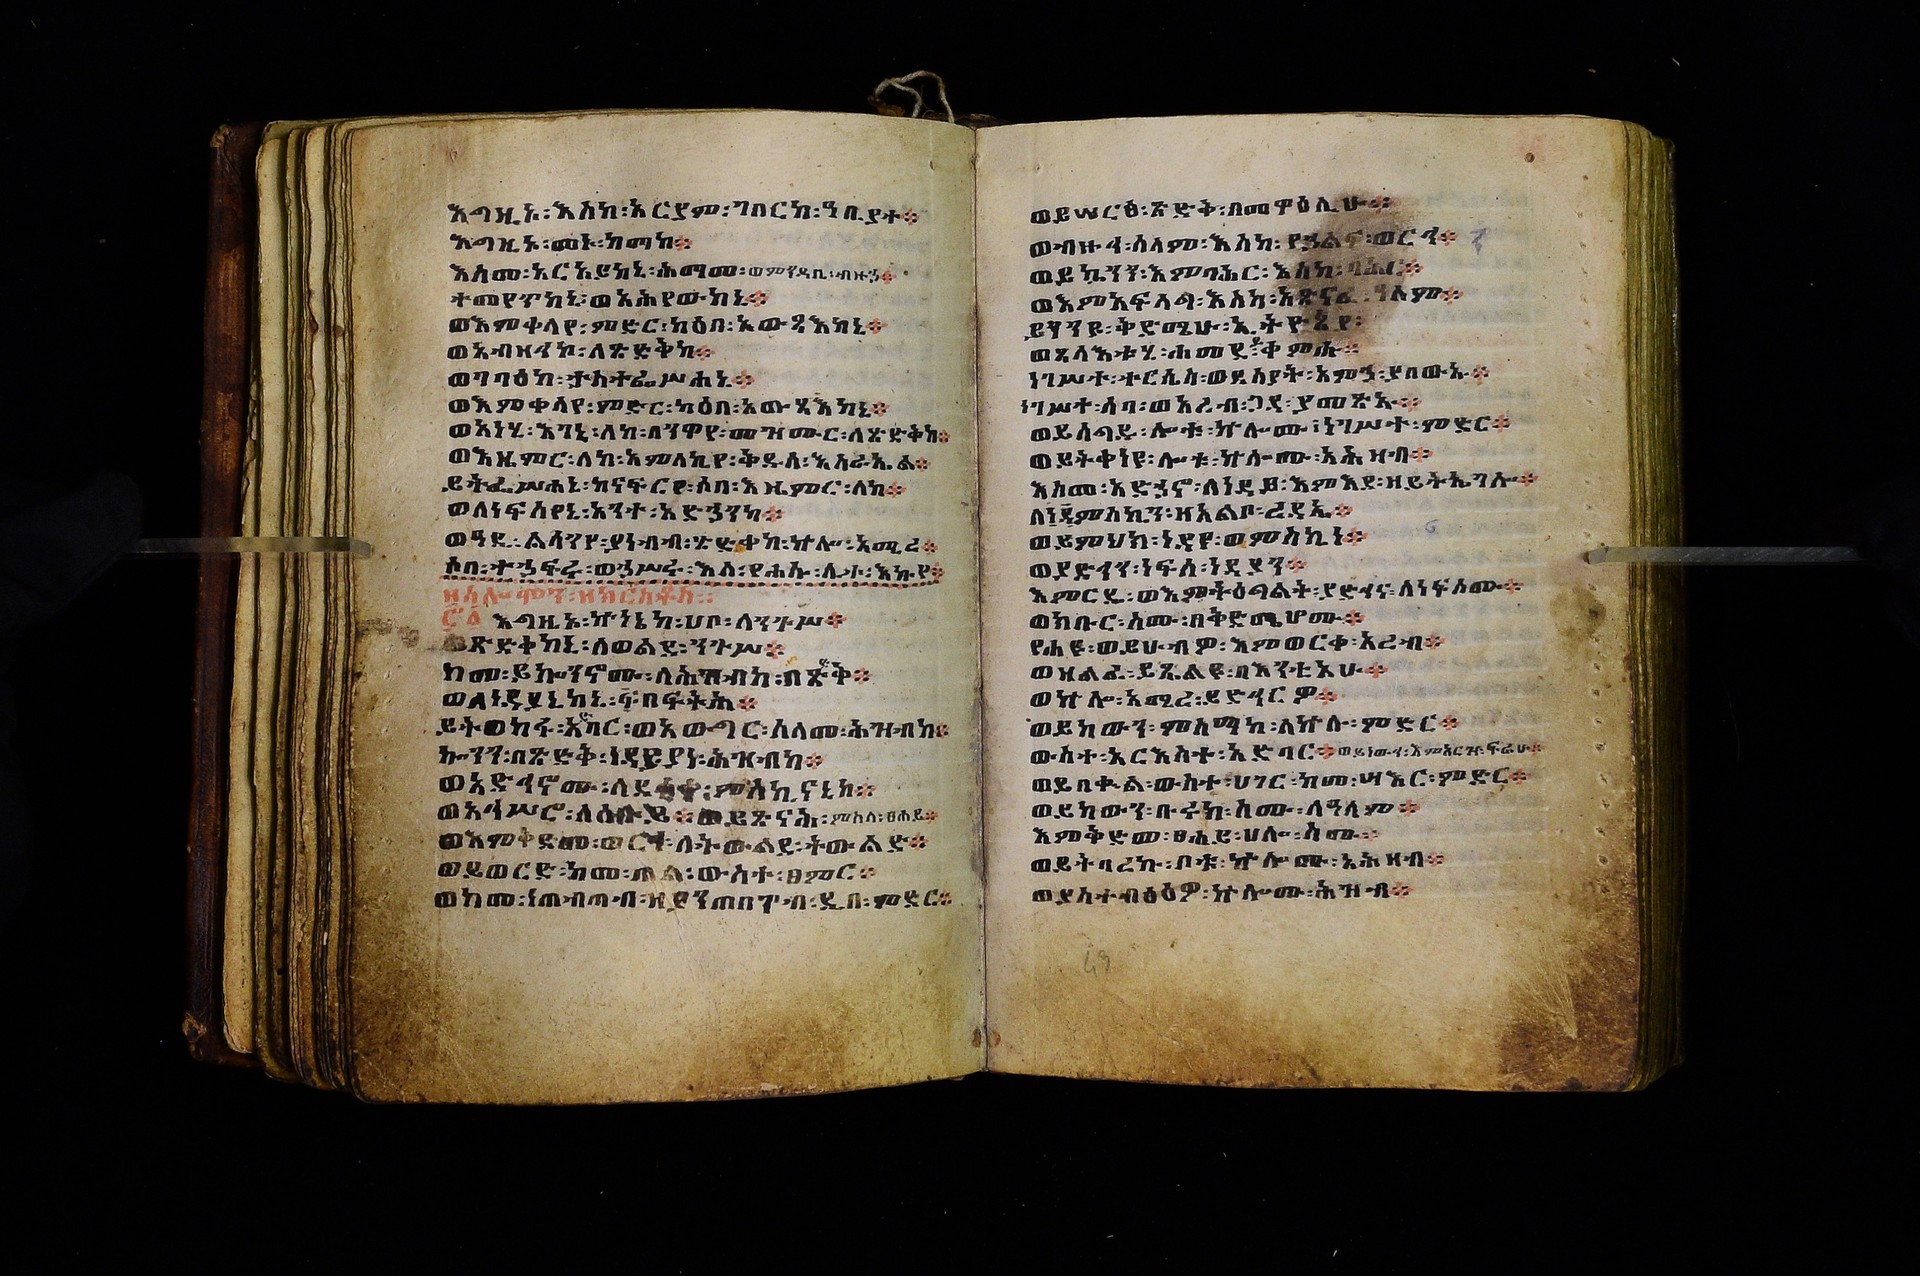 እግዚኦ፡እስከ፡አርያም፡ገበርከ፡ዓቢያተ።
እግዚኦ፡መኑ፡ከማከ።
እስመ፡አርአይከኒ፡ሕማመ፡ወምንዳቤ፡ብዙኃ።
ተመየጥከኒ፡ወአሕየውከኒ።
ወእምቀላየ፡ምድር፡ካዕበ፡አውፃእከኒ።
ወአብዛኅከ፡ለጽድቅከ።
ወገባዕከ፡
ወእምቀላየ፡ምድር፡ካዕበ፡አውፃእከኒ።
ወአነሂ፡እገኒ፡ለከ፡በንዋየ፡መዝሙር፡ለጽድቅከ።
ወእዜምር፡ለከ፡አምላኪየ፡ቅዱሰ፡እስራኤል።
ይትፌሥሐኒ፡ከናፍርየ፡ሶበ፡እዜምር፡ለከ።
ወለነፍስየኒ፡አንተ፡አድኀንካ።
ወዓዲ፡ልሳንየ፡ያነብብ፡ጽድቀከ፡ኵሎ፡አሚረ።
ሶበ፡ተኀፍሩ፡ወኀሥሩ፡እለ፡የሐሡ፡ሊተ፡እኩየ።
ዘሰሎሞን፡ዘክርስቶስ።
፸፩ እግዚኦ፡ኵነኔከ፡ሀቦ፡ለንጉሥ።
ወጽድቀከኒ፡ለወልደ፡ንጉሥ።
ከመ፡ይኰንኖሙ፡ለሕዝብከ፡በጽድቅ።
ወለነዳያኒከኒ፡በፍትሕ።
ይትወከፉ፡አድባር፡ወአውግር፡ሰላመ፡ሕዝብከ።
ኰንን፡በጽድቅ፡ነዳያነ፡ሕዝብከ።
ወአድኅኖሙ፡ለደቂቀ፡ምስኪናኒከ።
ወአኅሥሮ፡ለዕቡይ።ወይጽናሕ፡ምስለ፡ፀሐይ።
ወእምቅድመ፡ወርኅ፡ለትውልደ፡ትውልድ።
ወይወርድ፡ከመ፡ጠል፡ውስተ፡ፀምር።
ወከመ፡ነጠብጣብ፡ዘያንጠበጥብ፡ዲበ፡ምድር።
ወይሠርፅ፡ጽድቅ፡በመዋዕሊሁ።
ወብዙኅ፡ሰላም፡እስከ፡የኃልፍ፡ወርኅ።
ወይኴንን፡እምባሕር፡እስከ፡ባሕር።
ወእምአፍላግ፡እስከ፡አጽናፈ፡ዓለም።
ይገንዩ፡ቅድሜሁ፡ኢትዮጵያ።
ወጸላእቱሂ፡ሐመደ፡ይቅምሑ።
ነገሥተ፡ተርሴስ፡ወደሰያት፡አምኃ፡ያበውኡ።
ነገሥተ፡ሳባ፡ወአረብ፡ጋዳ፡ያመጽኡ።
ወይሰግዱ፡ሎቱ፡ኵሎሙ፡ነገሥተ፡ምድር።
ወይትቀነዩ፡ሎቱ፡ኵሎሙ፡አሕዛብ።
እስመ፡አድኀኖ፡ለነዳይ፡እምእደ፡ዘይትኤገሎ።
ለነዳይ፡ምስኪን፡ዘአልቦ፡ረዳኢ።
ወይምህክ፡ነዳየ፡ወምስኪነ።
ወያድኅን፡ነፍሰ፡ነዳያን።
እምርዴ፡ወእምትዕግልት፡ያድኅና፡ለነፍሶሙ።
ወክቡር፡ስሙ፡በቅድሜሆሙ።
የሐዩ፡ወይሁብዎ፡እምወርቀ፡አረብ።
ወዘልፈ፡ይጼልዩ፡በእንቲአሁ።
ወኵሎ፡አሚረ፡ይድኅርዎ።
ወይከውን፡ምስማከ፡ለኵሉ፡ምድር።
ውስተ፡አርእስተ፡አድባር።ወይነውኅ፡እምአርዝ፡ፍሬሁ።
ወይበቍል፡ውስተ፡ሀገር፡ከመ፡ሣዕር፡ምድር።
ወይከውን፡ቡሩከ፡ስሙ፡ለዓለም።
እምቅድመ፡ፀሐይ፡ሀሎ፡ስሙ።
ወይትባረኩ፡ቦቱ፡ኵሎሙ፡አሕዛብ።
ወያስተበፅዕዎ፡ኵሎሙ፡ሕዝብ።
49